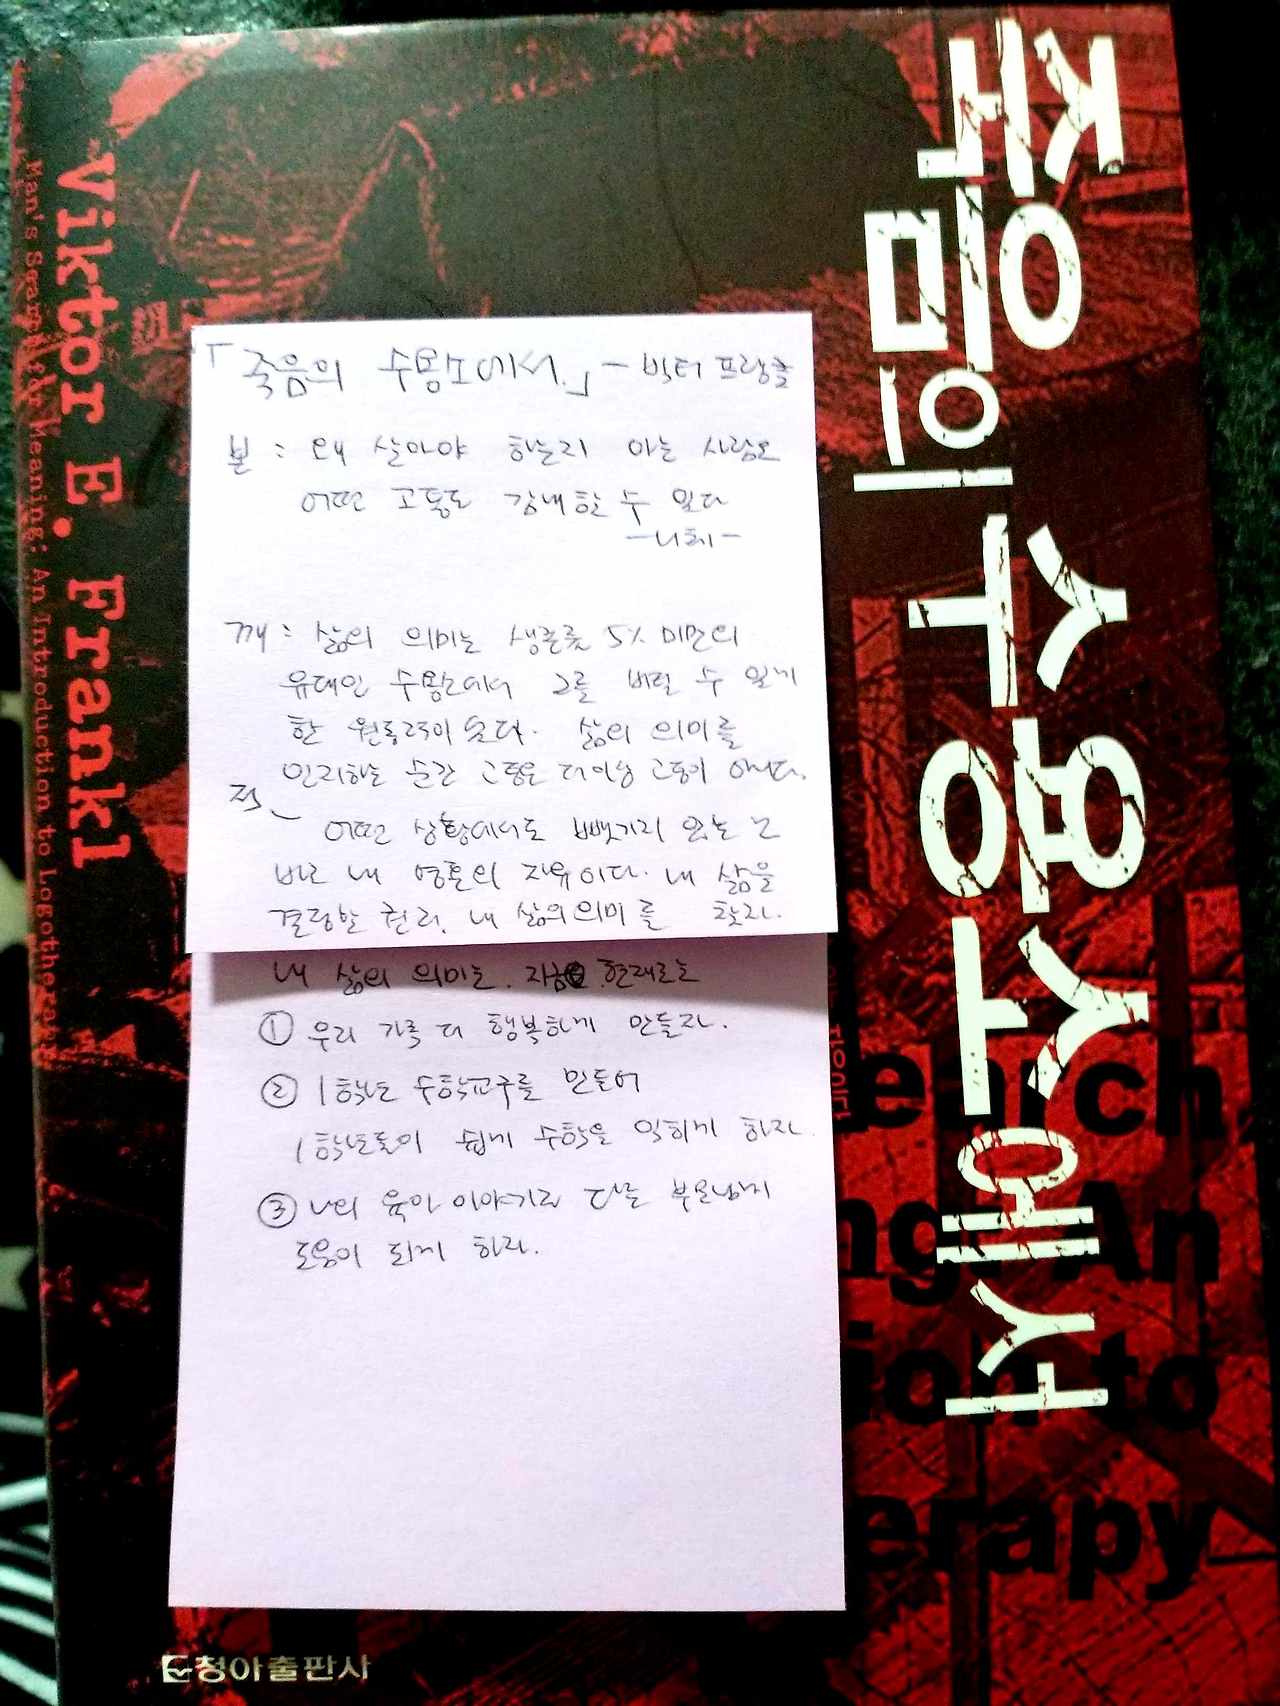 죽음의 수용소에서
Viktor E. Frankl
Man's Search for Meaning: An Introduction to Logotherapy
「죽음의 수용소에서.」 - 빅터 프랑클
본 : 왜 살아야 하는지 아는 사람은
어떤 고통도 감내할 수 있다
-니체-
깨 : 삶의 의미는 생존률 5% 미만의
유대인 수용소에서 그를 버틸 수 있게
한 원동력이 었다. 삶의 의미를
인지하는 순간 고통은 더이상 고통이 아니다.
적
어떤 상황에서도 빼앗기지 않는 건
바로 내 영혼의 자유이다. 내 삶을
결정할 권리. 내 삶의 의미를 찾자.
내 삶의 의미는. 지금 현재로는
① 우리 가족 더 행복하게 만들자.
② 1학년 수학교구를 만들어
1학년들이 쉽게 수학을 익히게 하자.
③ 나의 육아 이야기로 다른 부모님께
도움이 되게 하자.
earch
ng: An
ion to
erapy
청아출판사